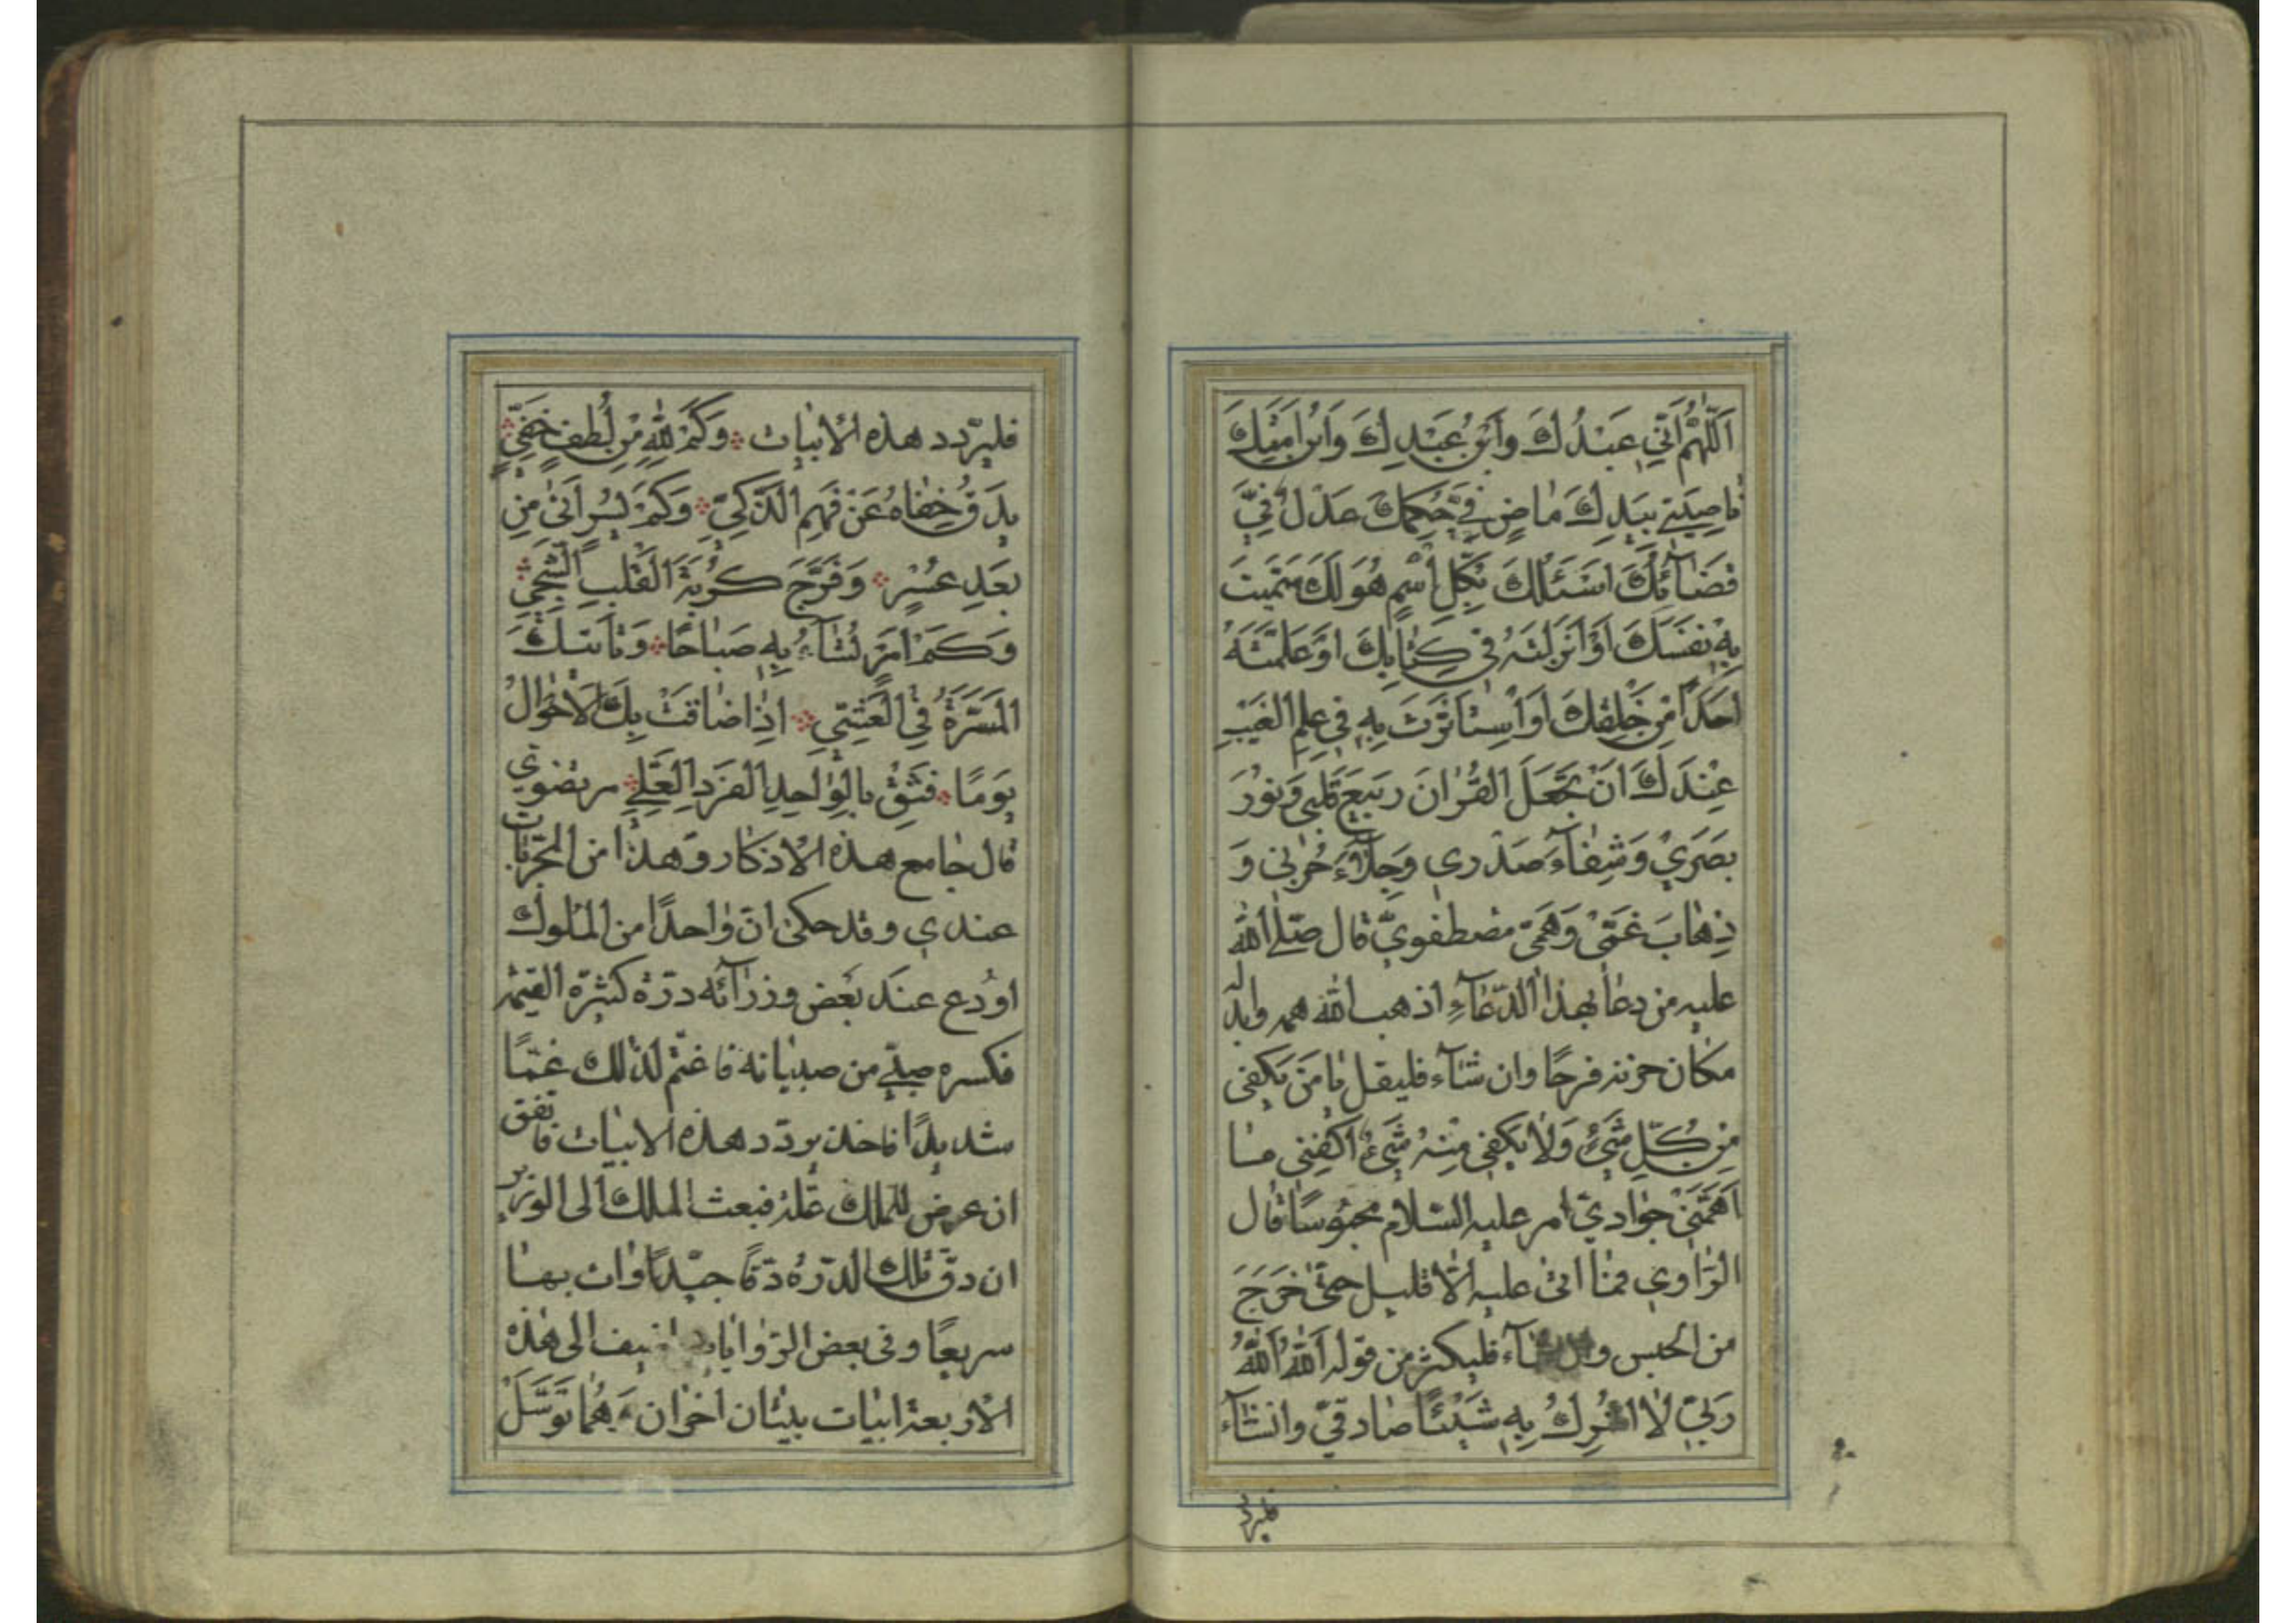 اَللّٰهُمَّ اِنّي عَبْدُكَ وَابْنُ عَبْدِكَ وَابْنُ اَمَتِكَ
ناصِيَتي بِيَدِكَ مٰاضٍ فِيَّ حُكمُكَ عَدْلٌ فِيَّ
قَضٰآئُكَ اَسْئَلُكَ بِكُلِّ اسْمٍ هُوَ لَكَ سَمَّيتَ
بِهِ نَفسَكَ اَوْ اَنْزَلتَهُ في كِتٰابِكَ اَوْ عَلَّمتَهُ
اَحَدًا مِن خَلقِكَ اَوِ اسْتَاثَرْتَ بِهِ في عِلمِ الغَيْبِ
عِندَكَ اَنْ تَجْعَلَ القُرْانَ رَبيعَ قَلبي وَنُورَ
بَصَري وَشِفٰآءَ صَدْري وَجَلآءَ حُزني وَ
ذِهٰابَ غَمّي وَهَمّي مصطفويّ قال صلّى الله
عليه من دعا بهذا الدّعآءِ اذهب الله همه وابدله
مكان حزنه فرحًا وان شآء فليقل يٰا مَنْ يَكفي
مِنْ كُلِّ شَيْءٍ وَلا يَكفي مِنْهُ شَيْءٌ اكفِني مٰا
اَهَمَّني جوادي امر عليه السّلام محبوسًا قال
الرّاوي فما اتى عليه الّا قليل حتّى خَرَجَ
من الحبس وان شآء فليكثر من قوله اَللّٰهُ اَللّٰهُ
رَبّي لٰا اُشْرِكُ بِهِ شَيْئًا صادقيّ وان شآء
فليردّد
فليردّد هذه الابيات وَكَمْ لِلّٰهِ مِن لُطفٍ خَفِيٍّ
يَدِقُّ خَفٰاهُ عَنْ فَهمِ الذَّكِيِّ وَكَمْ يُسْرٍ اَتىٰ مِن
بَعْدِ عُسْرٍ وَفَرَّجَ كُرْبَةَ القَلبِ الشَّجِيِّ
وَكَمْ اَمرٍ تُسٰآءُ بِهِ صَبٰاحًا وَتَاتيكَ
المَسَرَّةُ فِي العَشِيِّ اِذٰا ضٰاقَتْ بِكَ الاَحْوٰالُ
يَومًا فَثِقْ بِالوٰاحِدِ الفَرْدِ العَلِيِّ مرتضوي
قال جامع هذه الاذكار وهذا من المجرّبات
عندي وقد حكى انّ واحدًا من الملوك
اودع عند بعض وزرآئه درّة كثيرة القيمة
فكسره صبيّ من صبيانه فاغتم لذلك غمًّا
شديدًا فاخذ يردّد هذه الابيات فاتفق
ان عرض للملك علة فبعث الملك الى الوزير
ان دقّ تلك الدّرة دقًّا جيّدًا وات بها
سريعًا وفي بعض الرّوايات اضيف الى هذه
الاربعة ابيات بيتان اخران وَهُمٰا تَوَسَّلْ